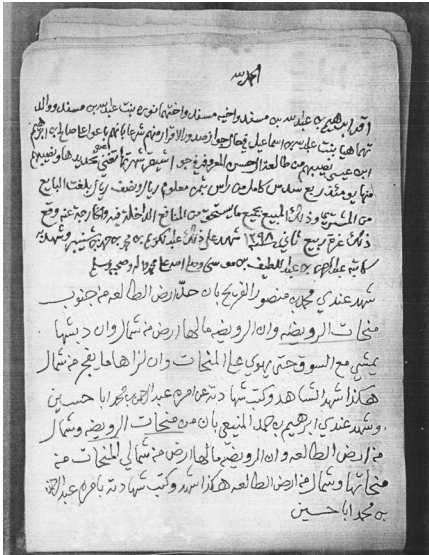 الحمد لله
اقر ابرهيم بن عبدالله بن مسند واخيه مسند واختهما نوره بنت عبدالله بن مسند ووالد
تهما هيا بنت علي بن اسماعيل في حال جواز صدور الاقرار منهم شرعا بانهم باعوا على صالح بن ابرهيم
ابن عيسى نصيبهم من طالعة ال حسن المعروفه في جو اشيقر شهرتها تغني عن تحديدها ونصيبهم
منها يومئذ ربع سدس كامل من راس بثمن معلوم ريال ونصف ريال بلغت البايع
من المشتري وذلك المبيع بجميع ما يستحق من المنافع الداخلة فيه والخارجة عنه وقع
ذلك غرة ربيع ثاني ١٢٩٨ شهد على ذلك عبدالله بن محمد بن شهد به
كاتبه عبدالرحمن بن عبداللطيف بن موسى وصلى الله على محمد واله وصحبه وسلم
شهد عندي محمد بن منصور الفريح بان حد ارض الطالعه من جنوب
منحات الرويضه وان الرويضه مالها ارض من شمال وان دبشها
يمشي مع السوق حتى يهوي على المنحات وان لزاها ما يفج من شمال
هكذا شهد الشاهد وكتب شهادته عن امره عبدالرحمن بن محمد ابا حسين
وشهد عندي ابرهيم بن حمد المنيعي بان من منحات الرويضه وشمال
من ارض الطالعه وان الرويضه مالها ارض من شمالي المنحات من
منحاتها وشمال من ارض الطالعه هكذا شهد وكتب شهادته بامره عبدالرحمن
بن محمد ابا حسين